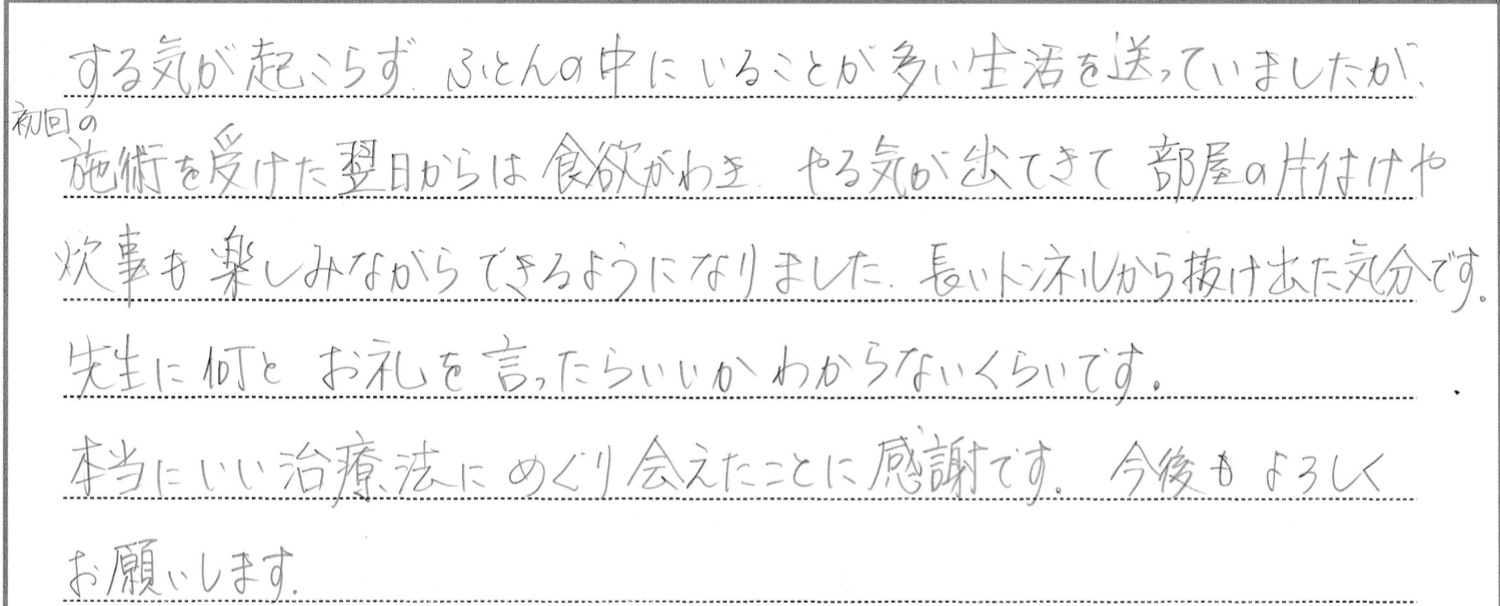 する気が起こらず、ふとんの中にいることが多い生活を送っていましたが、
初回の
施術を受けた翌日からは食欲がわき、やる気が出てきて部屋の片付けや
炊事も楽しみながらできるようになりました。長いトンネルから抜け出た気分です。
先生に何とお礼を言ったらいいかわからないくらいです。
本当にいい治療法にめぐり会えたことに感謝です。今後もよろしく
お願いします。